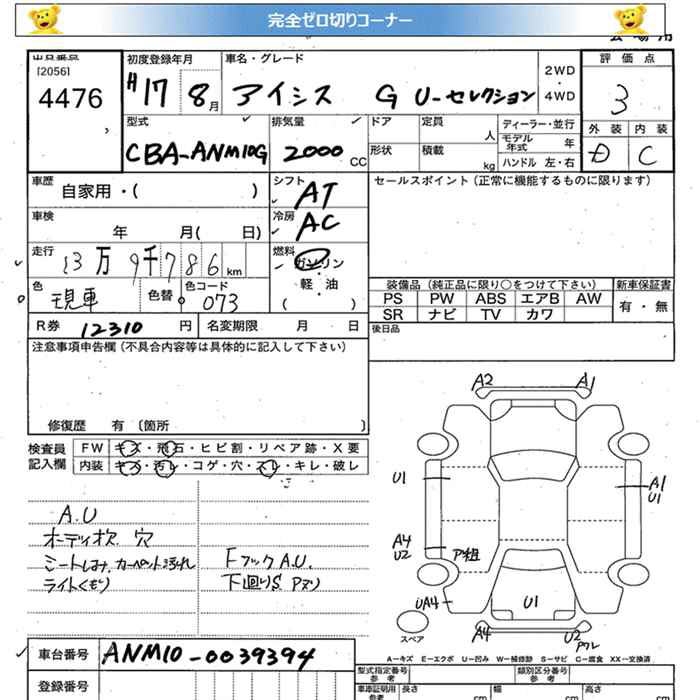 完全ゼロ切りコーナー
出品番号 初度登録年月 車名・グレード 評価点
[2056]
4476
H17 8月 アイシス G U-セレクション 2WD・4WD 3
型式 排気量 ドア 定員 人 ディーラー・並行 外装 内装
CBA-ANM10G 2000 CC 形状 積載 kg モデル年式 年 D C
ハンドル 左・右
車歴 自家用・( ) シフト AT セールスポイント(正常に機能するものに限ります)
車検 年 月( 日) 冷房 AC
走行 13万9千786km 燃料 ガソリン・軽・油 ( )
装備品(純正品に限り○をつけて下さい) 新車保証書
色 現車 色替 色コード 073 PS PW ABS エアB AW 有・無
SR ナビ TV カワ
R券 12310 円 名変期限 月 日 後日品
注意事項申告欄(不具合内容等は具体的に記入して下さい)
修復歴 有 〔箇所 〕
検査員記入欄 FW キズ・飛石・ヒビ割・リペア跡・X要
内装 キズ・汚レ・コゲ・穴・スレ・キレ・破レ
A2 A1
U1 A1
U1
A.U
オーディオ欠 穴
シートしみ カーペット汚れ
ライトくもり
Fフック A.U.
下廻りS Pズリ
A4
U2 ア粗
UA4 U1
スペア A4 U2
A－キズ E－エクボ U－凹み W－補修跡 S－サビ C－腐食 XX－交換済
車台番号 ANM10-0039394 型式指定番号 参考 類別区分番号 参考
登録番号 車庫証明用 参考 長さ cm 幅 cm 高さ cm